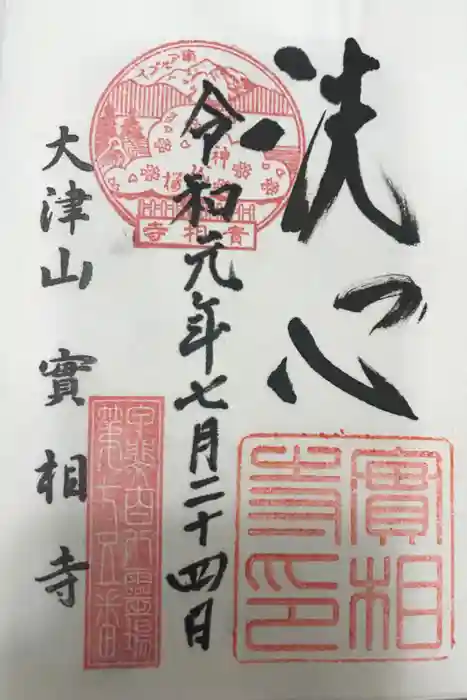 洗心
令和元年七月二十四日
大津山 實相寺
南アルプス
神
桜
實相寺
實相寺印
甲斐百八靈場